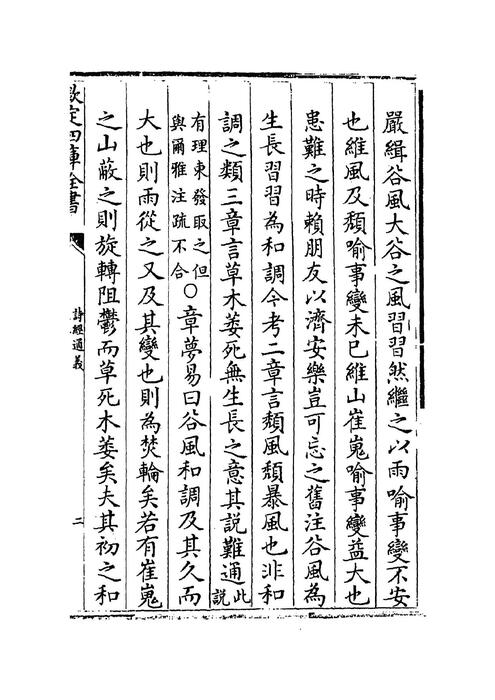 嚴緝谷風大谷之風習習然繼之以雨喻事變不安
也維風及頹喻事變未已維山崔嵬喻事變益大也
患難之時賴朋友以濟安樂豈可忘之舊注谷風為
生長習習為和調今考二章言頹風頹暴風也非和
調之類三章言草木萎死無生長之意其說難通此說
有理東發取之但與爾雅注疏不合○章夢易曰谷風和調及其久而
大也則雨從之又及其變也則為焚輪矣若有崔嵬
之山蔽之則旋轉阻鬱而草死木萎矣夫其初之和
欽定四庫全書
詩經通義
二